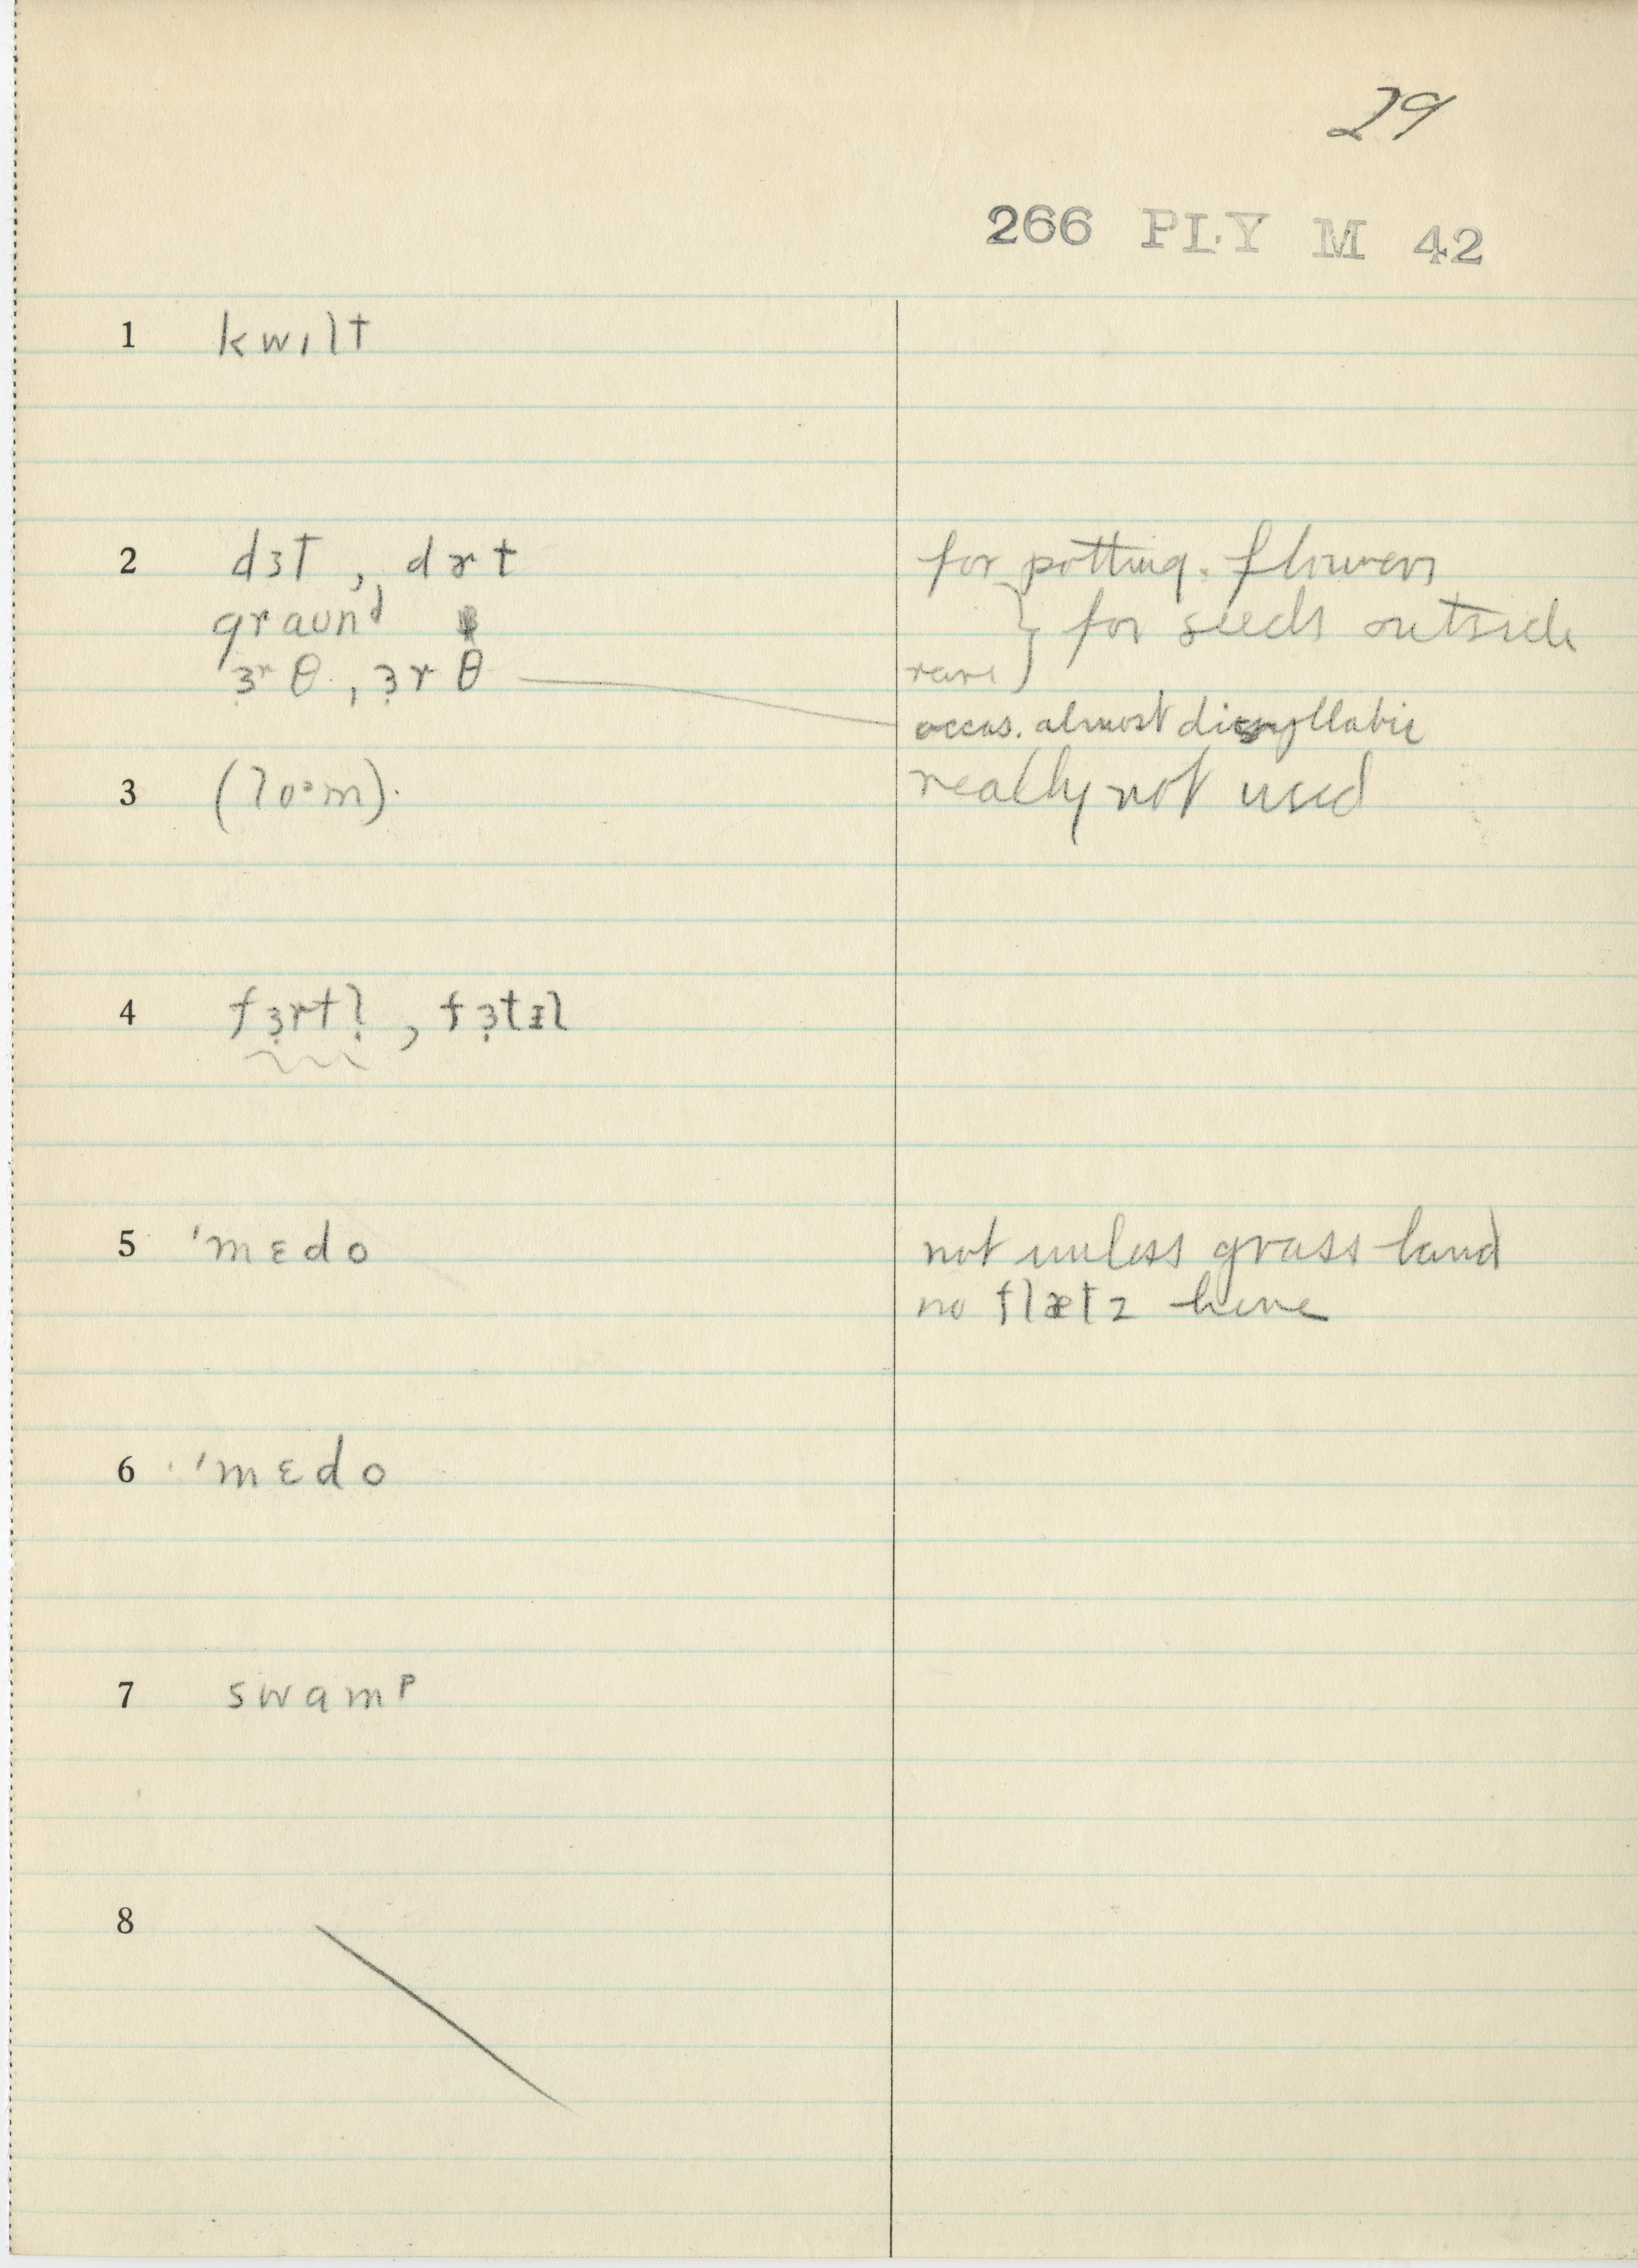 29
266 PLY M 42
1 kwɪlt
2 dɜt, dɚt for potting flowers
graʊnᵈ } for seeds outside
ɜ̣ʳθ, ɜ̣rθ rare
occas. almost disyllabic
3 (loᵊm). really not used
4 fɜ̣rtl̩, fɜ̣tɪl
5 ˈmɛdo not unless grass land
no flæts here
6 ˈmɛdo
7 swamᴾ
8